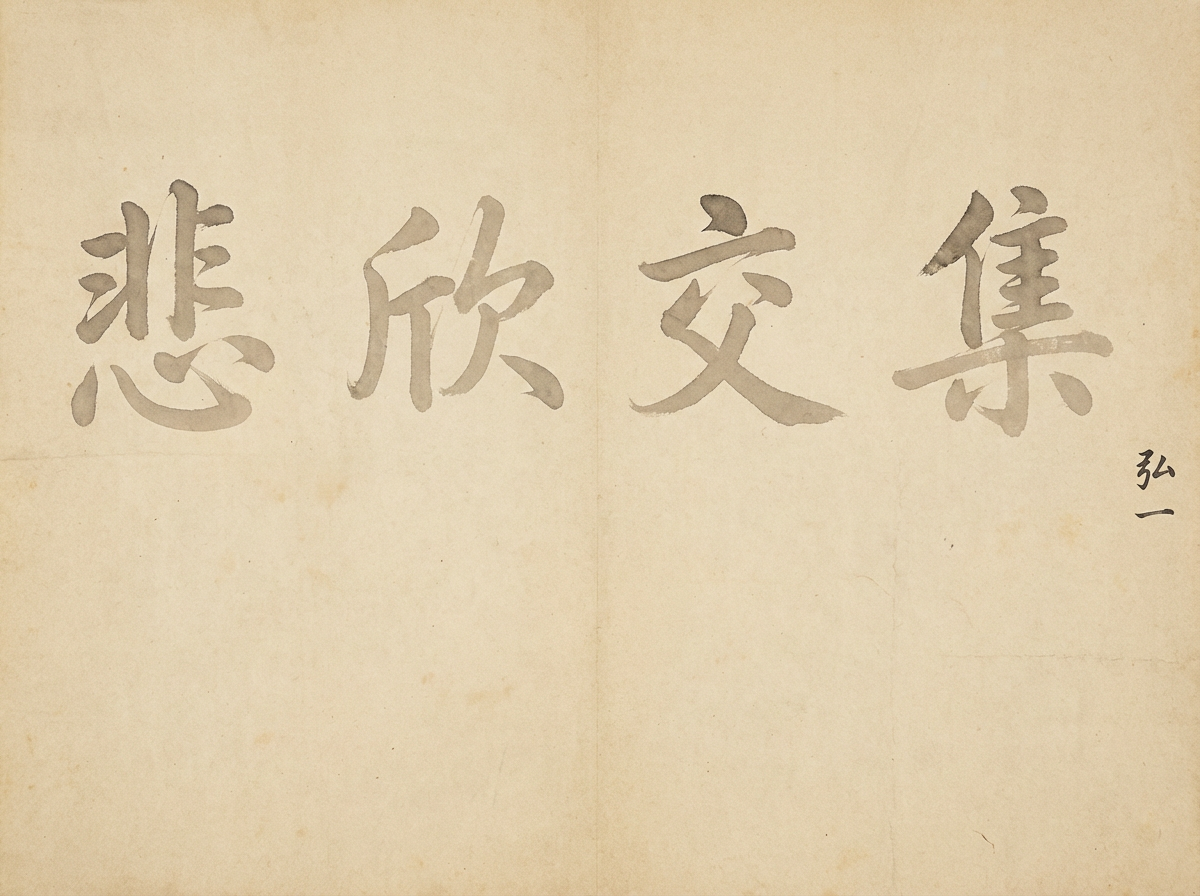 悲欣交集
弘一